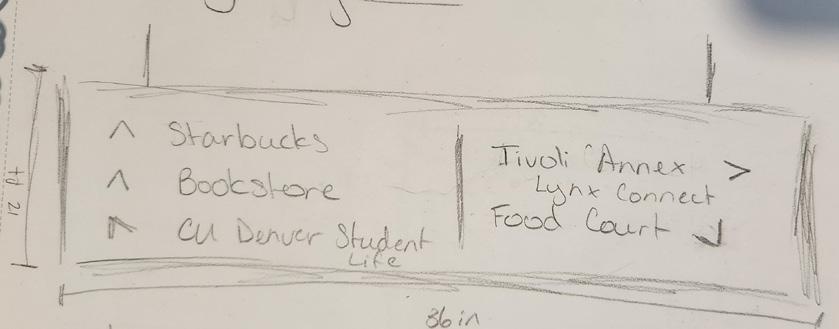 ^ Starbucks
^ Bookstore
CU Denver Student
Life
Tivoli Annex >
Lynx Connect
Food Court
36 in